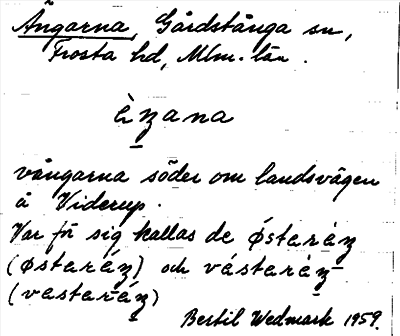 Ängarna, Gårdstånga sn,
Frosta hd, Mlm. län.
èꞥana
vångarna söder om landsvägen
å Viderup.
Var för sig kallas de ǿstaráꞥ
(østaráꞥ) och västaráꞥ
(västaráꞥ)
Bertil Wedmark 1959.